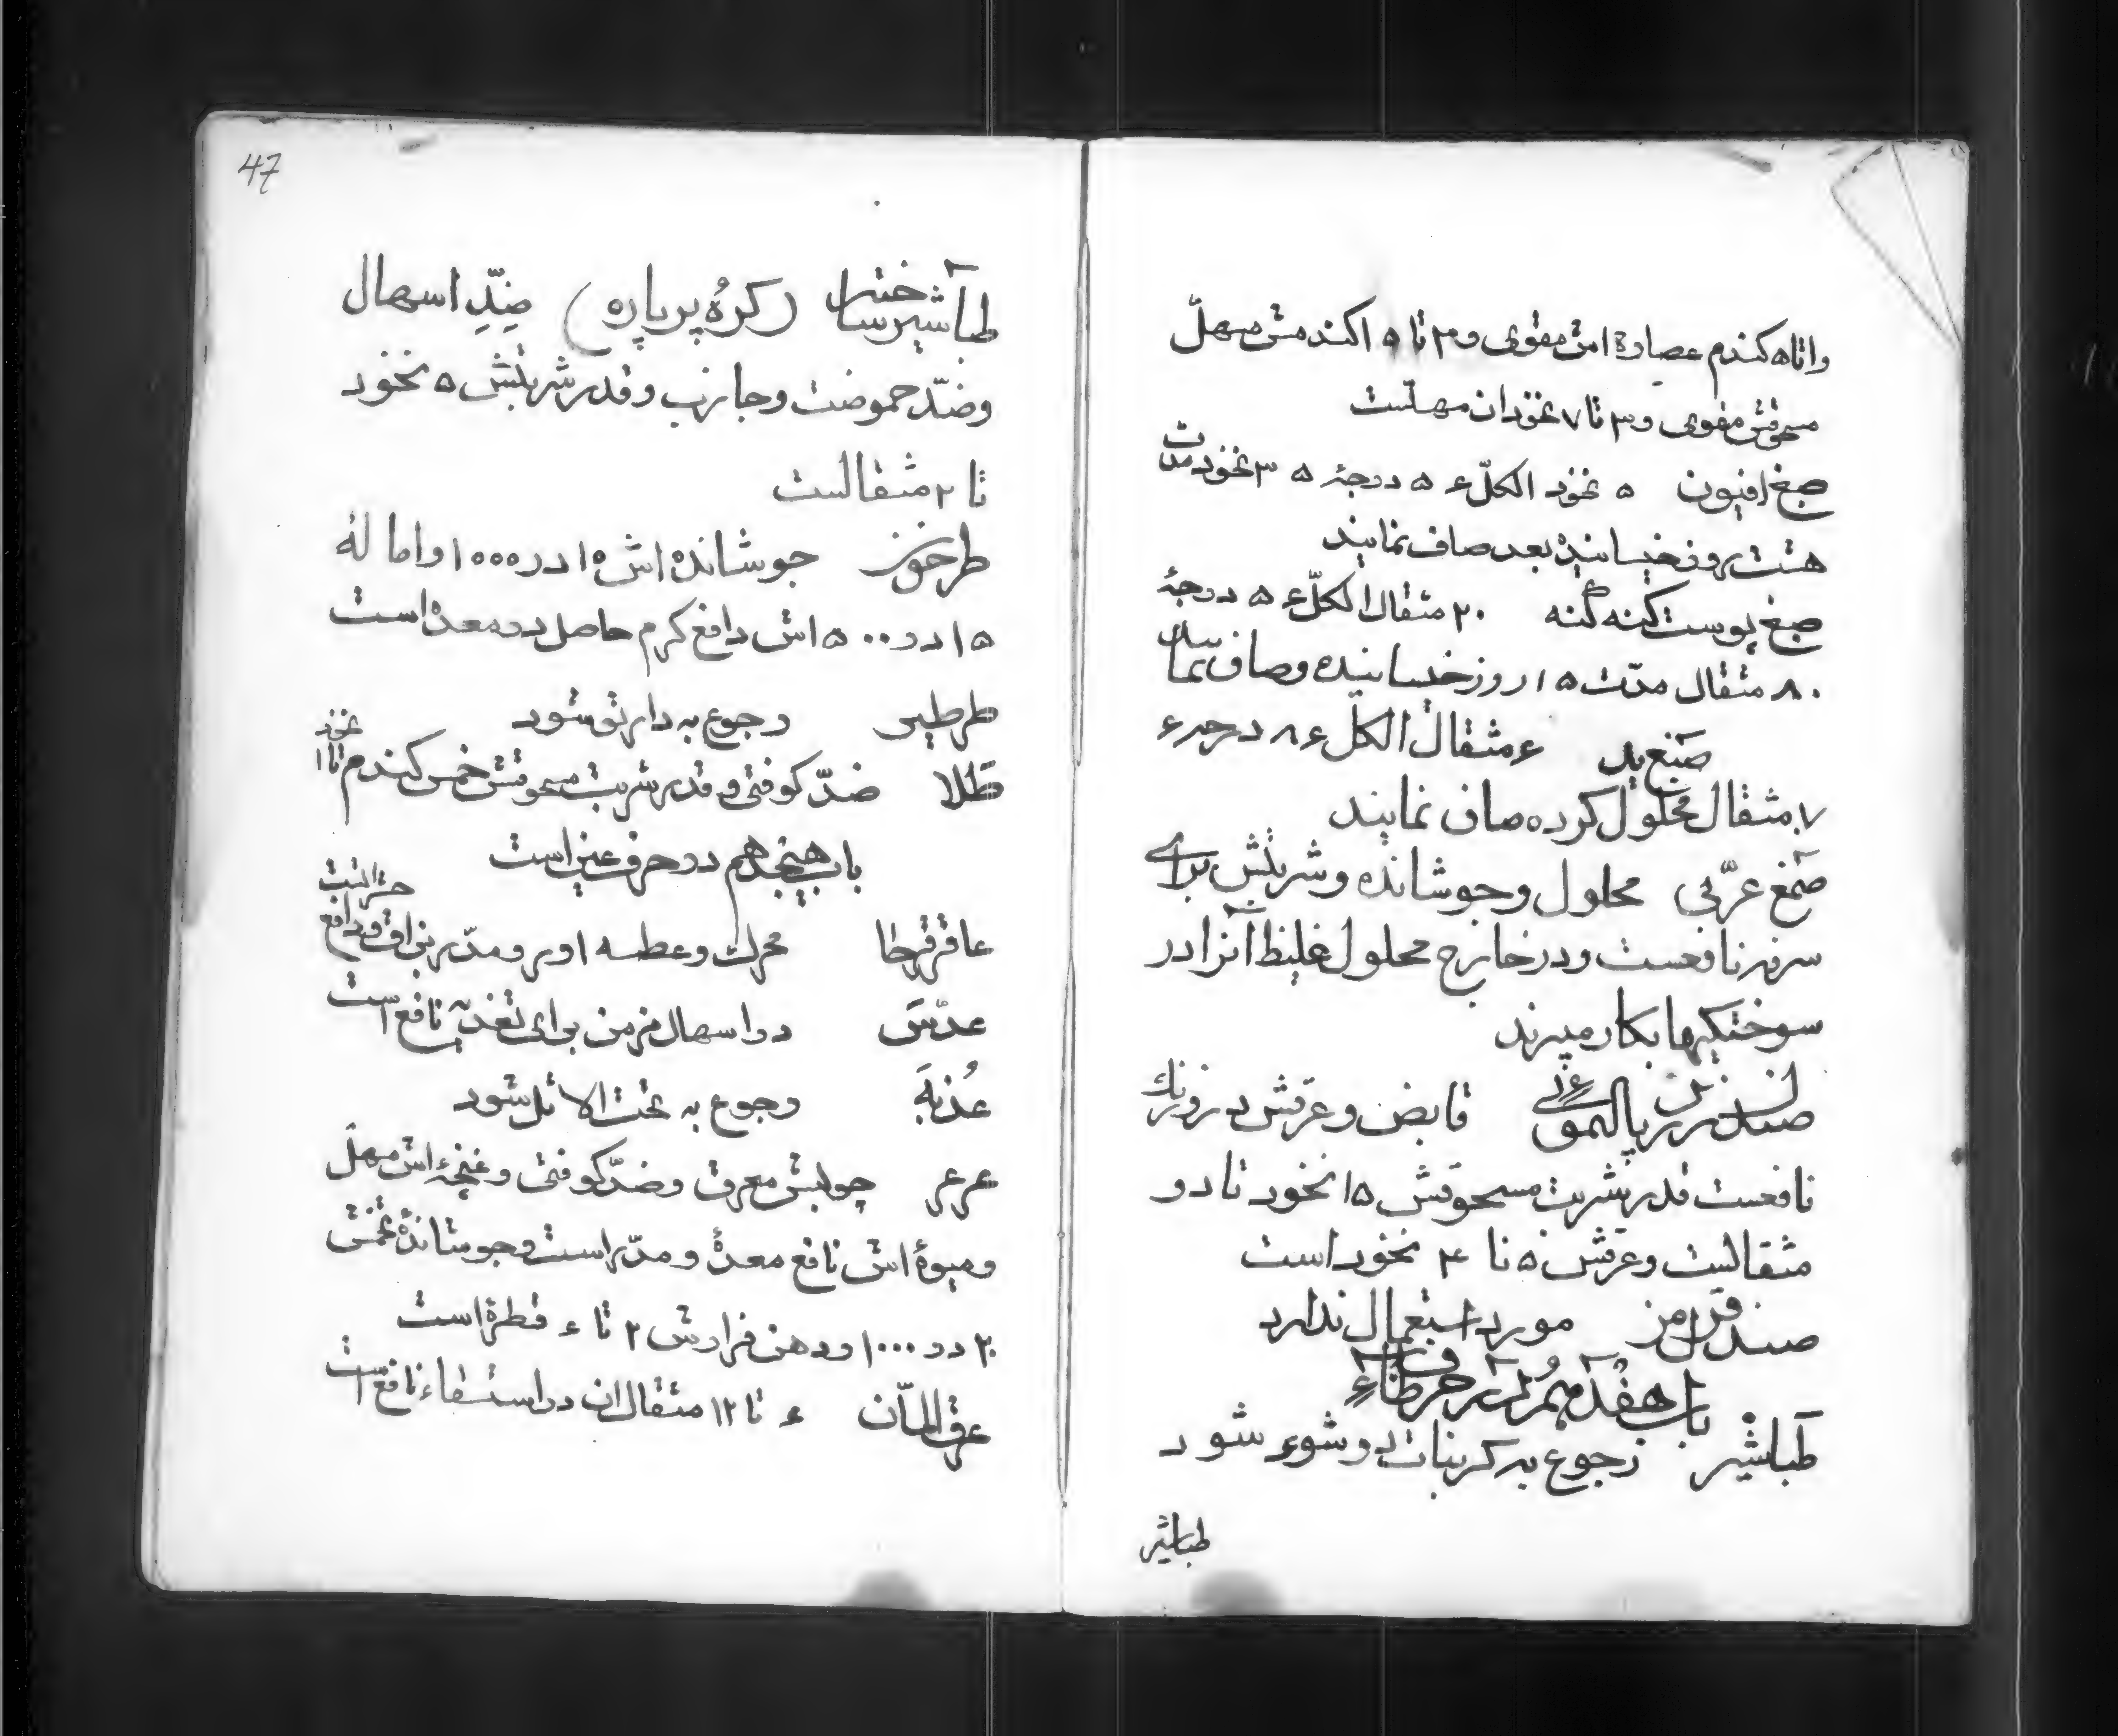 و اتا ۵ کندم عصارۀ اش مقوی و ۳ تا ۱۵ کندمش مسهلّ
مسحوقش مقوی و ۳ تا ۷ نخود ان مسهلست
صبغ افیون ۵ نخود الکلّ ۶۵ درجۀ ۵۳ نخود مدت
هشت روز خیسانیده بعد صاف نمایند
صبغ پوست کنه کنه ۲۰ مثقال الکلّ ۶۵ درجۀ
۸۰ مثقال مدّت ۱۵ روز خیسانیده و صاف نمایند
صبغ ید ۶ مثقال الکل ۸۶ درجه ۶
۷ مثقال محلول کرده صاف نمایند
صمغ عربّی محلول و جوشانده و شربتش برای
سرفه نافعست و در خارج محلول غلیظ آنرا در
سوختکیها بکار میبرند
صندل قابض و عرقش در سوزنك
نافعست قدر شربت مسحوقش ۱۵ نخود تا دو
مثقالست و عرقش ۵ تا ۴۰ نخود است
صندل قرمز مورد استعمال ندارد
باب هفدهم در حرف طاء
طباشیر رجوع به کربنات دو شو شود
طباشیر
47
طباشیر ساخته (کرۀ پرپاره) ضدِّ اسهال
و ضدّ حموضت و جاذب و قدر شربتش ۵ نخود
تا ۲ مثقالست
طرخون جوشانده اش ۱۰ در ۱۰۰۰ و امالۀ
۱۵ در ۵۰۰ اش دافع کرم حاصل در معده است
طرطیر رجوع به دارتو شود
طلا ضدّ کوفتی و قدر شربت مسحوقش خمس کندم تا ۱ نخود
باب هیجدهم در حرف عین است
عاقرقرحا محرك و عطسه اور و مدّر بزاق و دافع
عدس در اسهال مزمن برای تغذیه نافع است
عذبَه رجوع به تخت الاثل شود
عرعر چوبش معرق و ضدّ کوفتی و غنچۀ اش مسهل
و میوۀ اش نافع معدۀ و مدّر است و جوشاندۀ تخمش
۲۰ در ۱۰۰۰ و دهن فرارش ۲ تا ۶ قطرۀ است
عرق ۶ تا ۱۲ مثقال ان در استسقاء نافع است